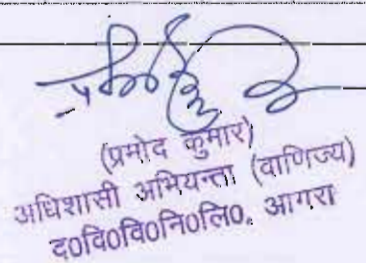 (प्रमोद कुमार)
अधिशासी अभियन्ता (वाणिज्य)
द०वि०वि०नि०लि०. आगरा